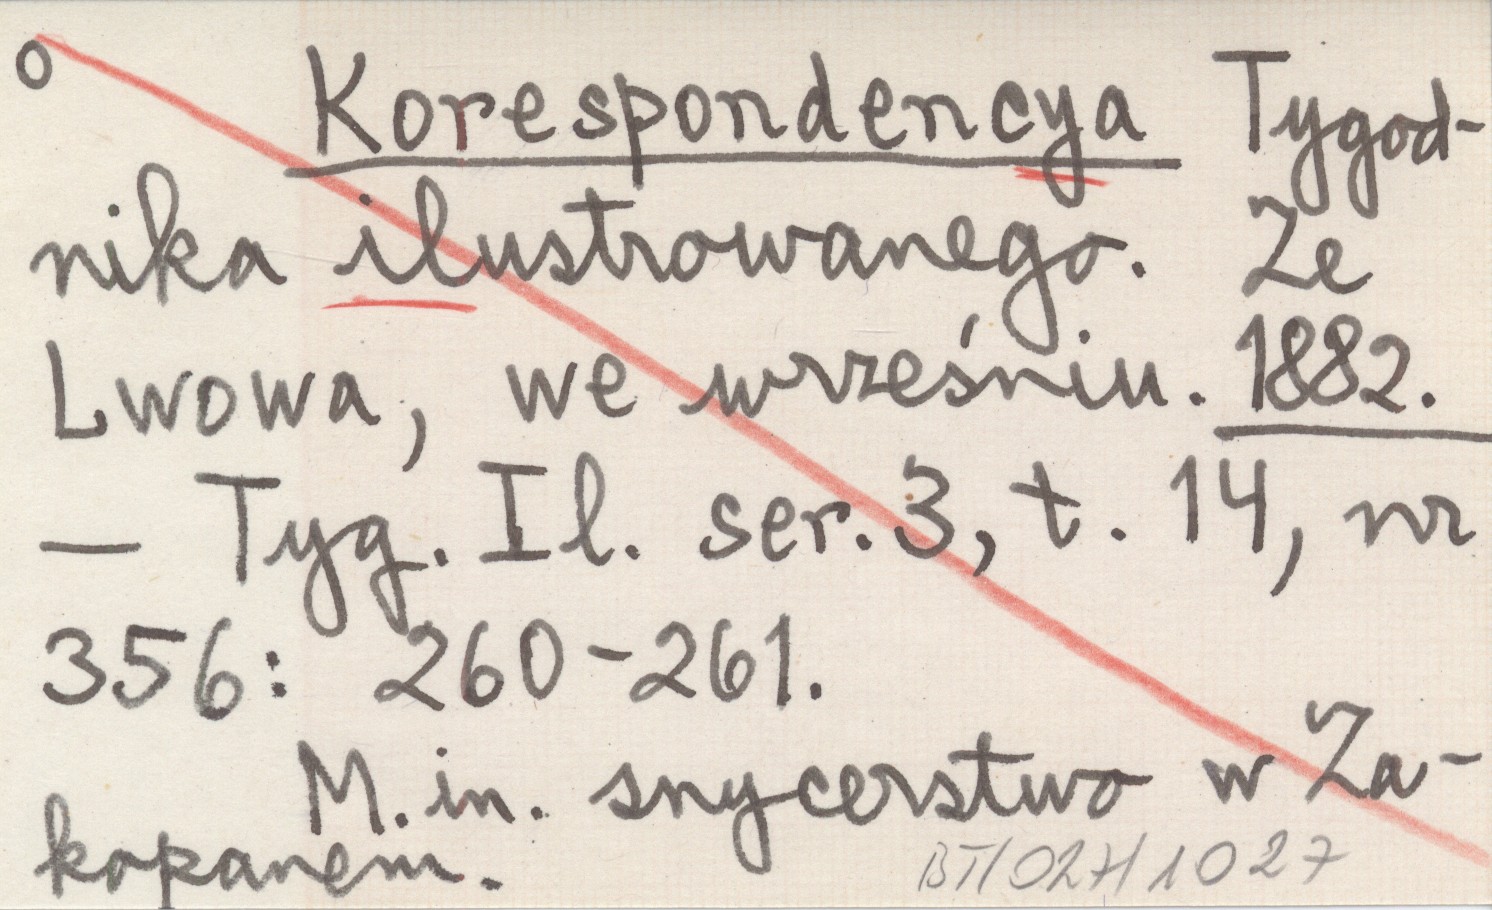 o Korespondencya Tygod-
nika ilustrowanego. Ze
Lwowa, we wrześniu. 1882.
— Tyg. Il. ser. 3, t. 14, nr
356: 260-261.
M. in. snycerstwo w Za-
kopanem.
BT/027/1027